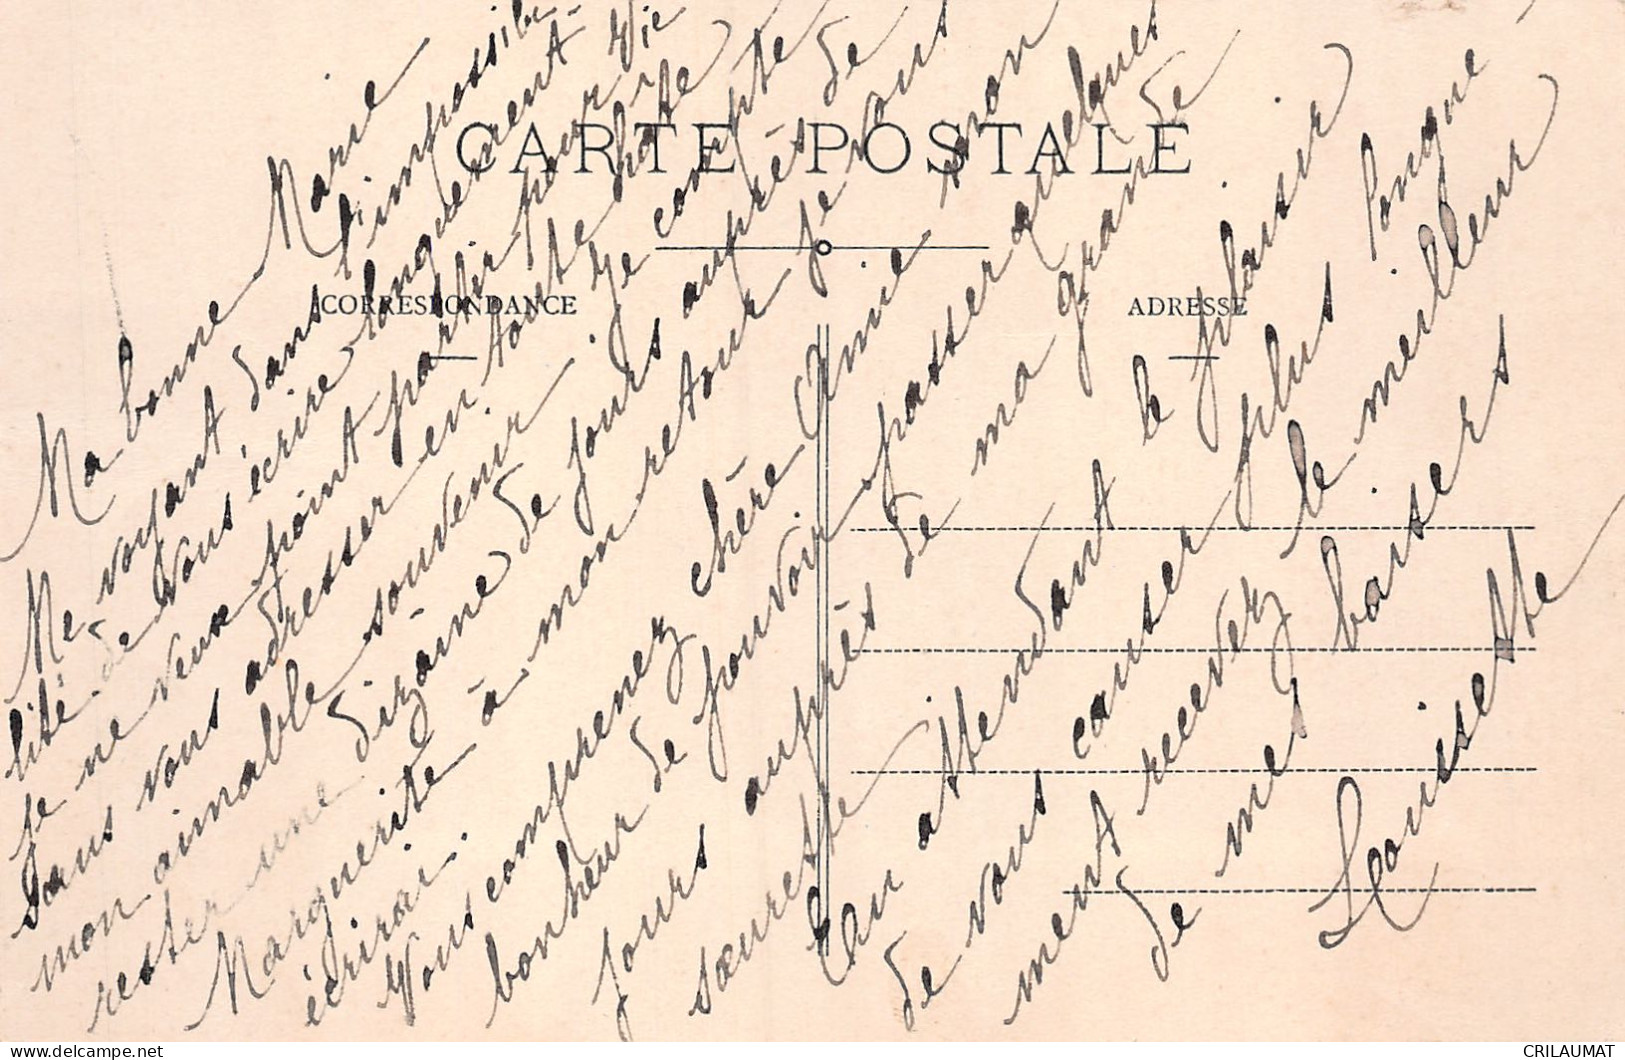 CARTE POSTALE
CORRESPONDANCE
ADRESSE
Ma bonne Marie
Me voyant dans l'impossibi-
lité de vous écrire longuement
je ne veux point partir pour Vi
sans vous adresser en toute hâte
mon aimable souvenir. Je compte
rester une dizaine de jours auprès de
Marguerite à mon retour je vous
écrirai.
Vous comprenez chère Amie mon
bonheur de pouvoir passer quelques
jours auprès de ma grande
sœurette
En attendant le plaisir
de vous causer plus longue
ment recevez le meilleur
de mes baisers
Louisette
CRILAUMAT